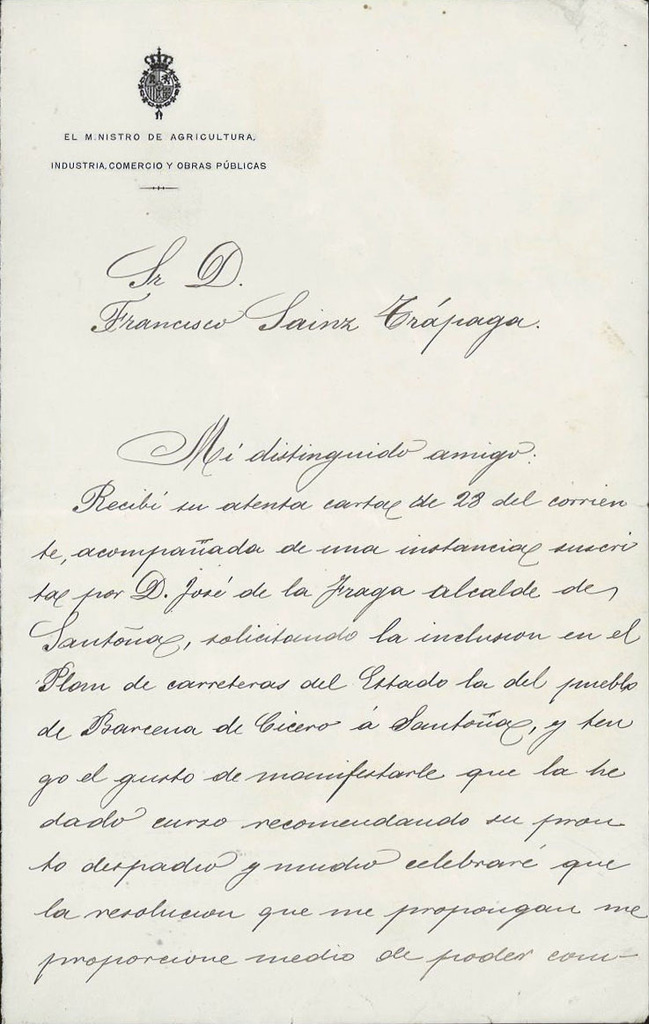 EL MINISTRO DE AGRICULTURA,
INDUSTRIA, COMERCIO Y OBRAS PÚBLICAS
Sr D.
Francisco Sainz Trápaga.
Mi distinguido amigo:
Recibí su atenta carta de 23 del corrien
te, acompañada de una instancia suscri
ta por D. José de la Fraga alcalde de
Santoña, solicitando la inclusion en el
Plan de carreteras del Estado la del pueblo
de Barcena de Cicero á Santoña, y ten
go el gusto de manifestarle que la he
dado curso recomendando su pron
to despacho y mucho celebraré que
la resolucion que me propongan me
proporcione medio de poder com-